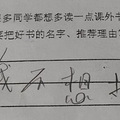 多同学都想多读一点课外书
要把好书的名字、推荐理由
我不想